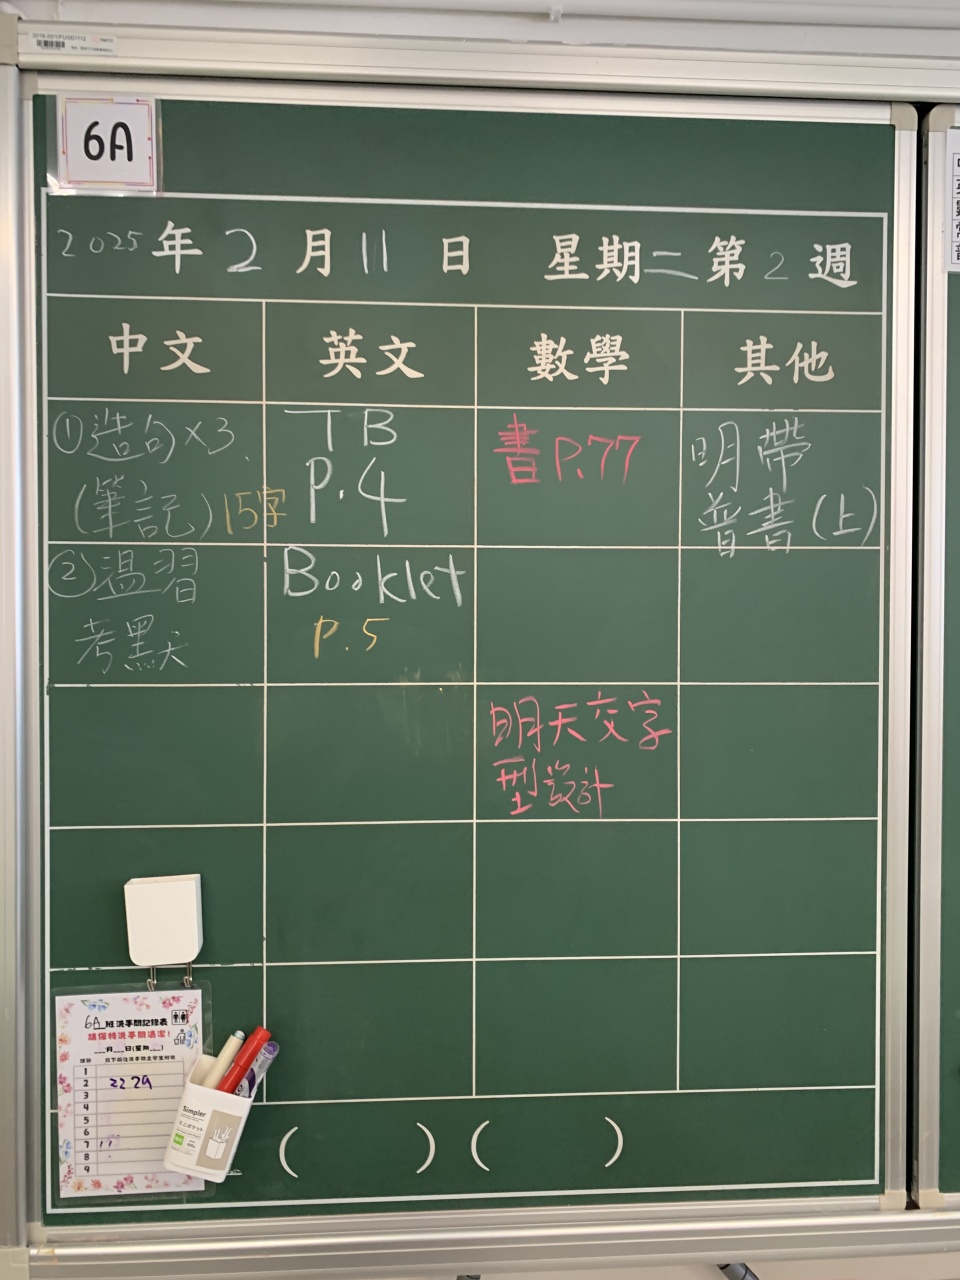 6A
2025年2月11日 星期二第2週
中文 英文 數學 其他
①造句×3、
(筆記)15字
TB
P.4
書P.77
明帶
普書(上)
②溫習
考默
Booklet
P.5
明天交字
型設計
6A班洗手間記錄表
請保持洗手間清潔!
___月___日(星期___)
1
2 22 29
3
4
5
6
7
8
9
Simpler
ミニポケット
( ) ( )